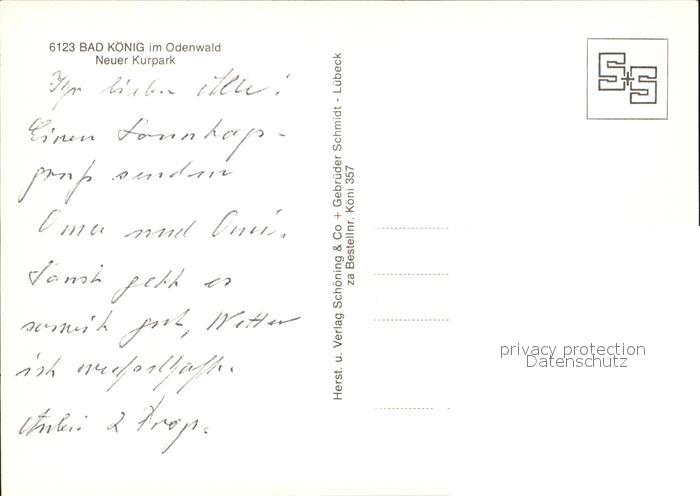 6123 BAD KÖNIG im Odenwald
Neuer Kurpark
Ihr lieben Alle!
Einen Sonntags-
gruß senden
Oma und Omi.
Sonst geht es
soweit gut, Wetter
ist wechselhaft.
Anbei 2 Prosp.
Herst. u. Verlag Schöning & Co + Gebrüder Schmidt - Lübeck
za Bestellnr. Köni 357
S+S
privacy protection
Datenschutz